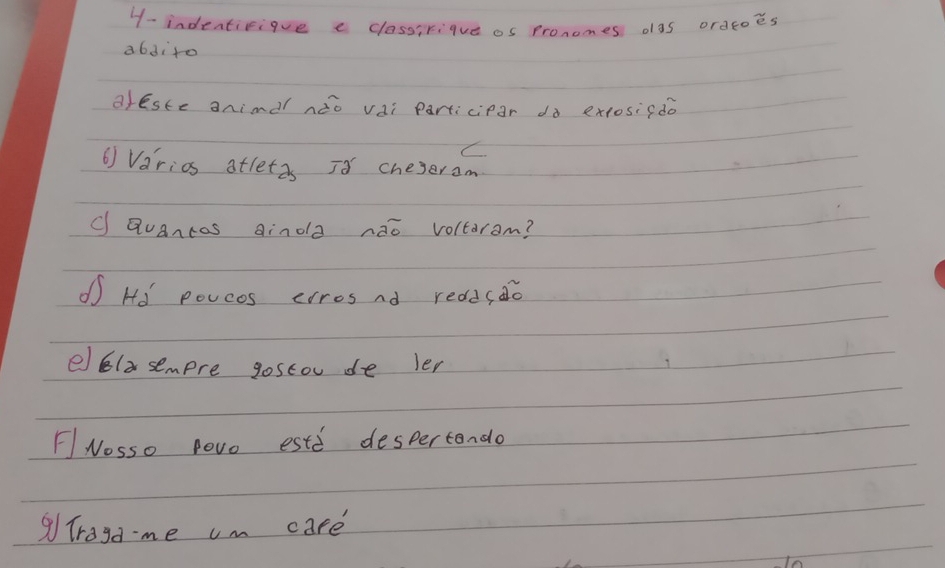 4- indentifique e classifique os Pronomes das oraçoẽs
abaixo
a) Este animal não vai Participar da exposição
b) Vários atletas Já chegaram
c) Quantos ainda não voltaram?
d) Há poucos erros na redação
e) Ela sempre gostou de ler
F) Nosso povo está despertando
g) Traga-me um café